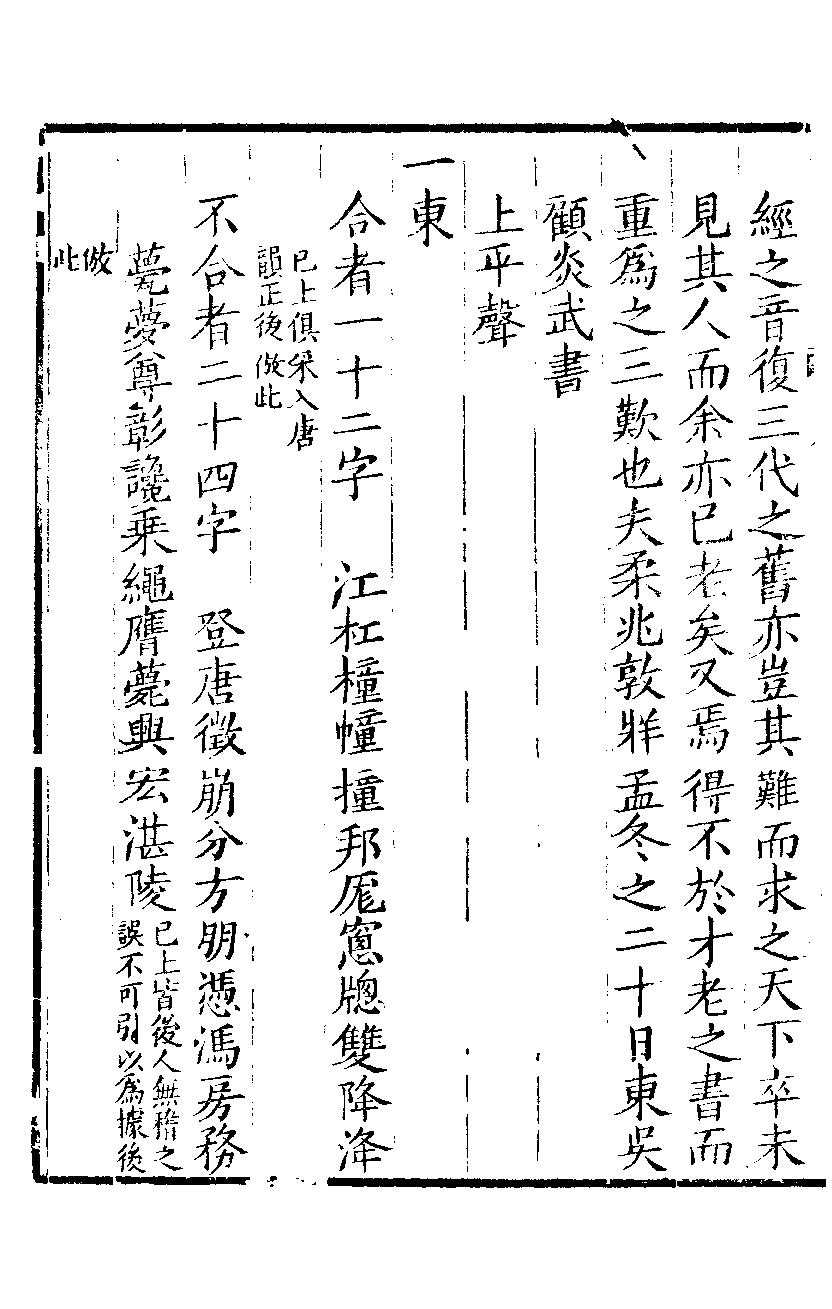 經之音復三代之舊亦豈其難而求之天下卒未
見其人而余亦已老矣又焉得不於才老之書而
重爲之三歎也夫柔兆敦牂孟冬之二十日東吳
顧炎武書
上平聲
一東
合者一十二字　江杠橦幢撞邦厖窻牕雙降洚
已上俱采入唐
韻正後倣此
不合者二十四字　登唐徵崩分方朋憑馮房務
甍夢尊彰讒乗繩膺薨興宏湛陵
已上皆後人無稽之
誤不可引以爲據後
倣
此